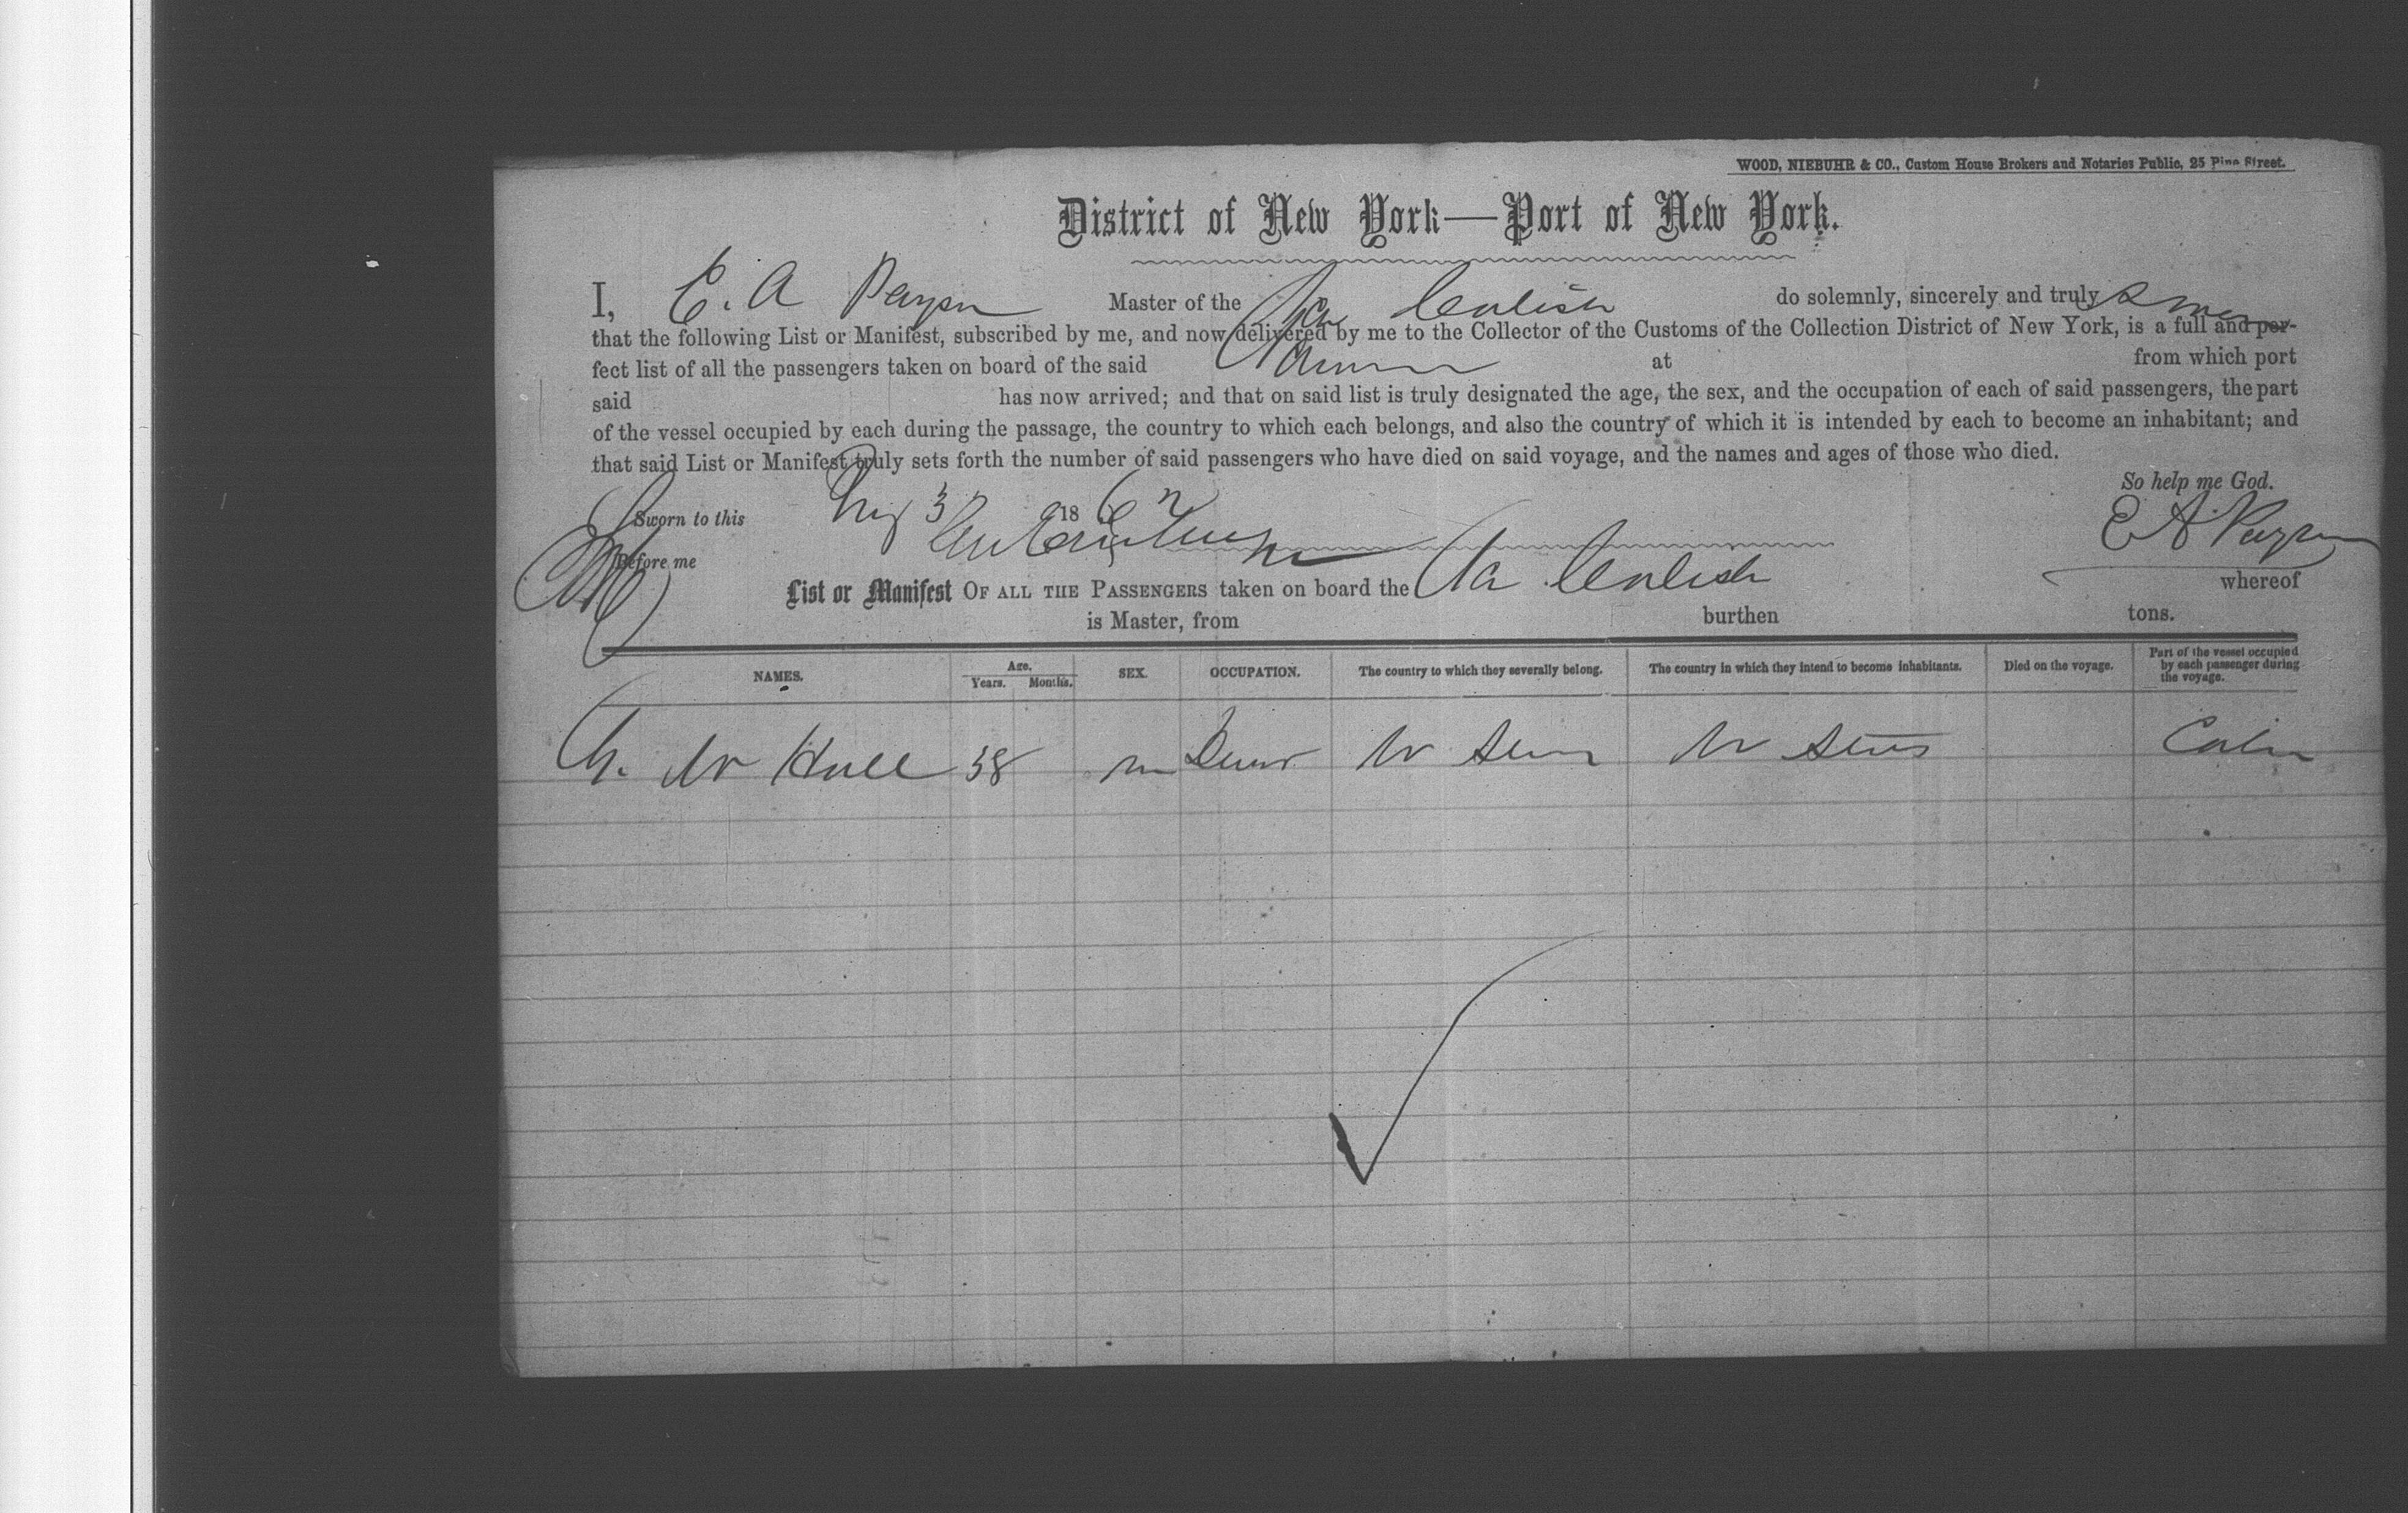 WOOD, NIEBUHR & CO., Custom House Brokers and Notaries Public, 25 Pine Street.
District of New York—Port of New York.
I, E. A Payson Master of the do solemnly, sincerely and truly
that the following List or Manifest, subscribed by me, and now delivered by me to the Collector of the Customs of the Collection District of New York, is a full and per-
fect list of all the passengers taken on board of the said at from which port
said has now arrived; and that on said list is truly designated the age, the sex, and the occupation of each of said passengers, the part
of the vessel occupied by each during the passage, the country to which each belongs, and also the country of which it is intended by each to become an inhabitant; and
that said List or Manifest truly sets forth the number of said passengers who have died on said voyage, and the names and ages of those who died.
So help me God.
Sworn to this 3 186
E A Payson
Before me
List or Manifest OF ALL THE PASSENGERS taken on board the whereof
is Master, from burthen tons.
NAMES. Age. Years. Months. SEX. OCCUPATION. The country to which they severally belong. The country in which they intend to become inhabitants. Died on the voyage. Part of the vessel occupied by each passenger during the voyage.
W Hull 38 m